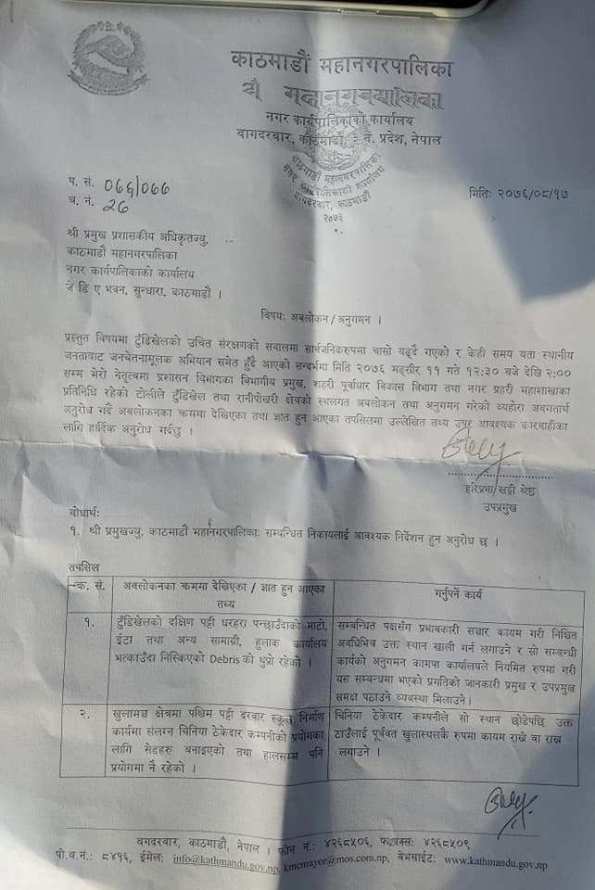 काठमाडौं महानगरपालिका
नगर कार्यपालिकाको कार्यालय
बागदरबार, काठमाडौं, ३ नं. प्रदेश, नेपाल
काठमाडौं महानगरपालिका
नगर कार्यपालिकाको कार्यालय
बागदरबार, काठमाडौं
२०५२
प. सं. ०७६/०७७
च. नं. २७
मितिः २०७६/०८/१७
श्री प्रमुख प्रशासकीय अधिकृतज्यू,
काठमाडौं महानगरपालिका
नगर कार्यपालिकाको कार्यालय
जे डि ए भवन, सुन्धारा, काठमाडौं ।
विषयः अवलोकन/अनुगमन ।
प्रस्तुत विषयमा टुँडिखेलको उचित संरक्षणको सवालमा सार्वजनिकरुपमा चासो बढ्दै गएको र केही समय यता स्थानीय
जनताबाट जनचेतनामूलक अभियान समेत हुँदै आएको सन्दर्भमा मिति २०७६ मङ्सीर ११ गते १२:३० बजे देखि २:००
सम्म मेरो नेतृत्वमा प्रशासन विभागका विभागीय प्रमुख, शहरी पूर्वाधार विकास विभाग तथा नगर प्रहरी महाशाखाका
प्रतिनिधि रहेको टोलीले टुँडिखेल तथा रानीपोखरी क्षेत्रको स्थलगत अवलोकन तथा अनुगमन गरेको व्यहोरा अवगतार्थ
अनुरोध गर्दै अवलोकनका क्रममा देखिएका तथा ज्ञात हुन आएका तपसिलमा उल्लेखित तथ्य उपर आवश्यक कारवाहीका
लागि हार्दिक अनुरोध गर्दछु ।
हरिप्रभा खड्गी श्रेष्ठ
उपप्रमुख
बोधार्थः
१. श्री प्रमुखज्यू, काठमाडौं महानगरपालिकाः सम्बन्धित निकायलाई आवश्यक निर्देशन हुन अनुरोध छ ।
तपसिल
क. सं. अवलोकनका क्रममा देखिएका / ज्ञात हुन आएका गर्नुपर्ने कार्य
तथ्य
१. टुँडिखेलको दक्षिण पट्टी धरहरा पन्छाउँदाको माटो, सम्बन्धित पक्षसँग प्रभावकारी सञ्चार कायम गरी निश्चित
ईटा तथा अन्य सामाग्री, हुलाक कार्यालय अवधिभित्र उक्त स्थान खाली गर्न लगाउने र सो सम्बन्धी
भत्काउँदा निस्किएको Debris को थुप्रो रहेको । कार्यको अनुगमन कामपा कार्यालयले नियमित रुपमा गरी
यस सम्बन्धमा भएको प्रगतिको जानकारी प्रमुख र उपप्रमुख
समक्ष पठाउने व्यवस्था मिलाउने ।
२. खुलामञ्च क्षेत्रमा पश्चिम पट्टी दरबार स्कूल निर्माण चिनिया ठेकेदार कम्पनीले सो स्थान छोडेपछि उक्त
कार्यमा संलग्न चिनिया ठेकेदार कम्पनीको प्रयोगका ठाउँलाई पूर्ववत खुलास्थलकै रुपमा कायम राख्ने वा राख्न
लागि सेडहरु बनाइएको तथा हालसम्म पनि लगाउने ।
प्रयोगमा नै रहेको ।
बगदरबार, काठमाडौं, नेपाल । फोन नं.: ४२६८५०६, फ्याक्सः ४२६८५०९
पो.ब.नं.: ८४१६, ईमेलः info@kathmandu.gov.np, kmcmayor@mos.com.np, वेभसाईटः www.kathmandu.gov.np